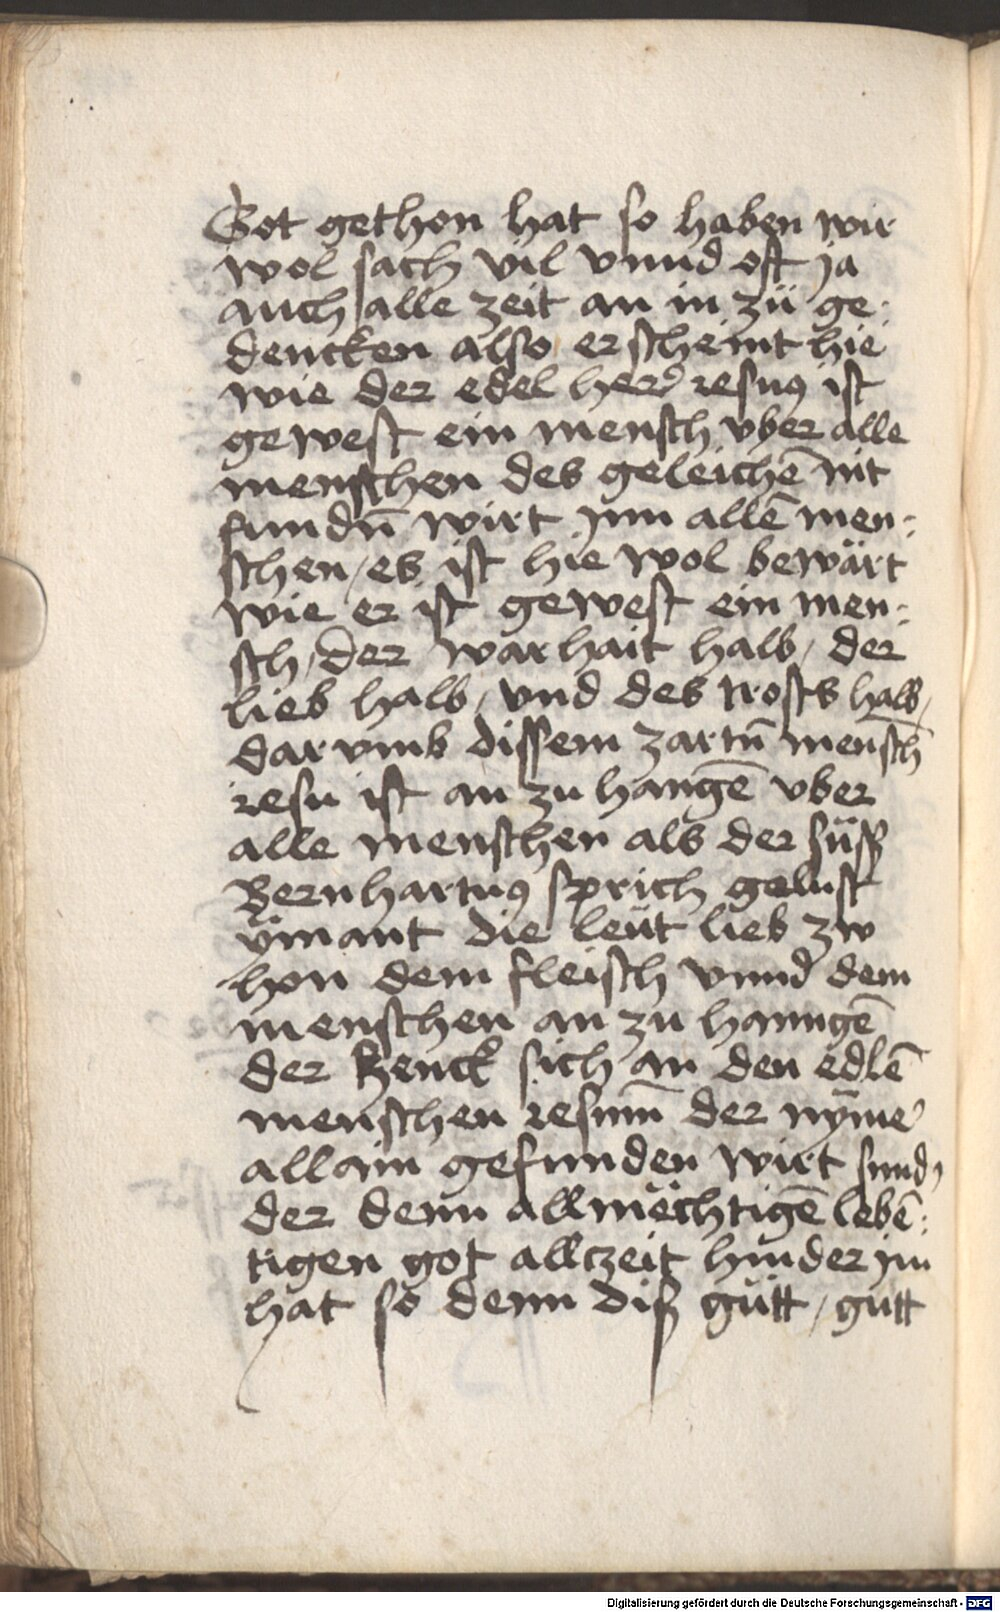 Got gethon hat so haben wir
wol sach vil vnnd oft ja
auch alle zeit an in zü ge:
dencken also erscheint hie
wie der edel her iesus ist
gewest ein mensch vber alle
menschen des geleichē nit
fundn̄ wirt jnn allē men:
schen / es ist hie wol bewärt
wie er ist gewest ein men:
sch / der warhait halb / der
lieb halb / vnd des trosts halb /
darvmb dissem zartn̄ mensch̄
iesu ist an zu hangē vber
alle menschen als der süss
Bernhartus sprich gelust
ÿmant die leüt lieb zw
hon dem fleisch vnnd dem
menschen an zu hanngē
der henck sich an den edlē
menschen iesum̄ der nÿmer
allain gefunden wirt sund
der denn allmëchtigē lebē:
tigen got allczeit hinder jm
hat so denn diß gütt / gütt
Digitalisierung gefördert durch die Deutsche Forschungsgemeinschaft - DFG